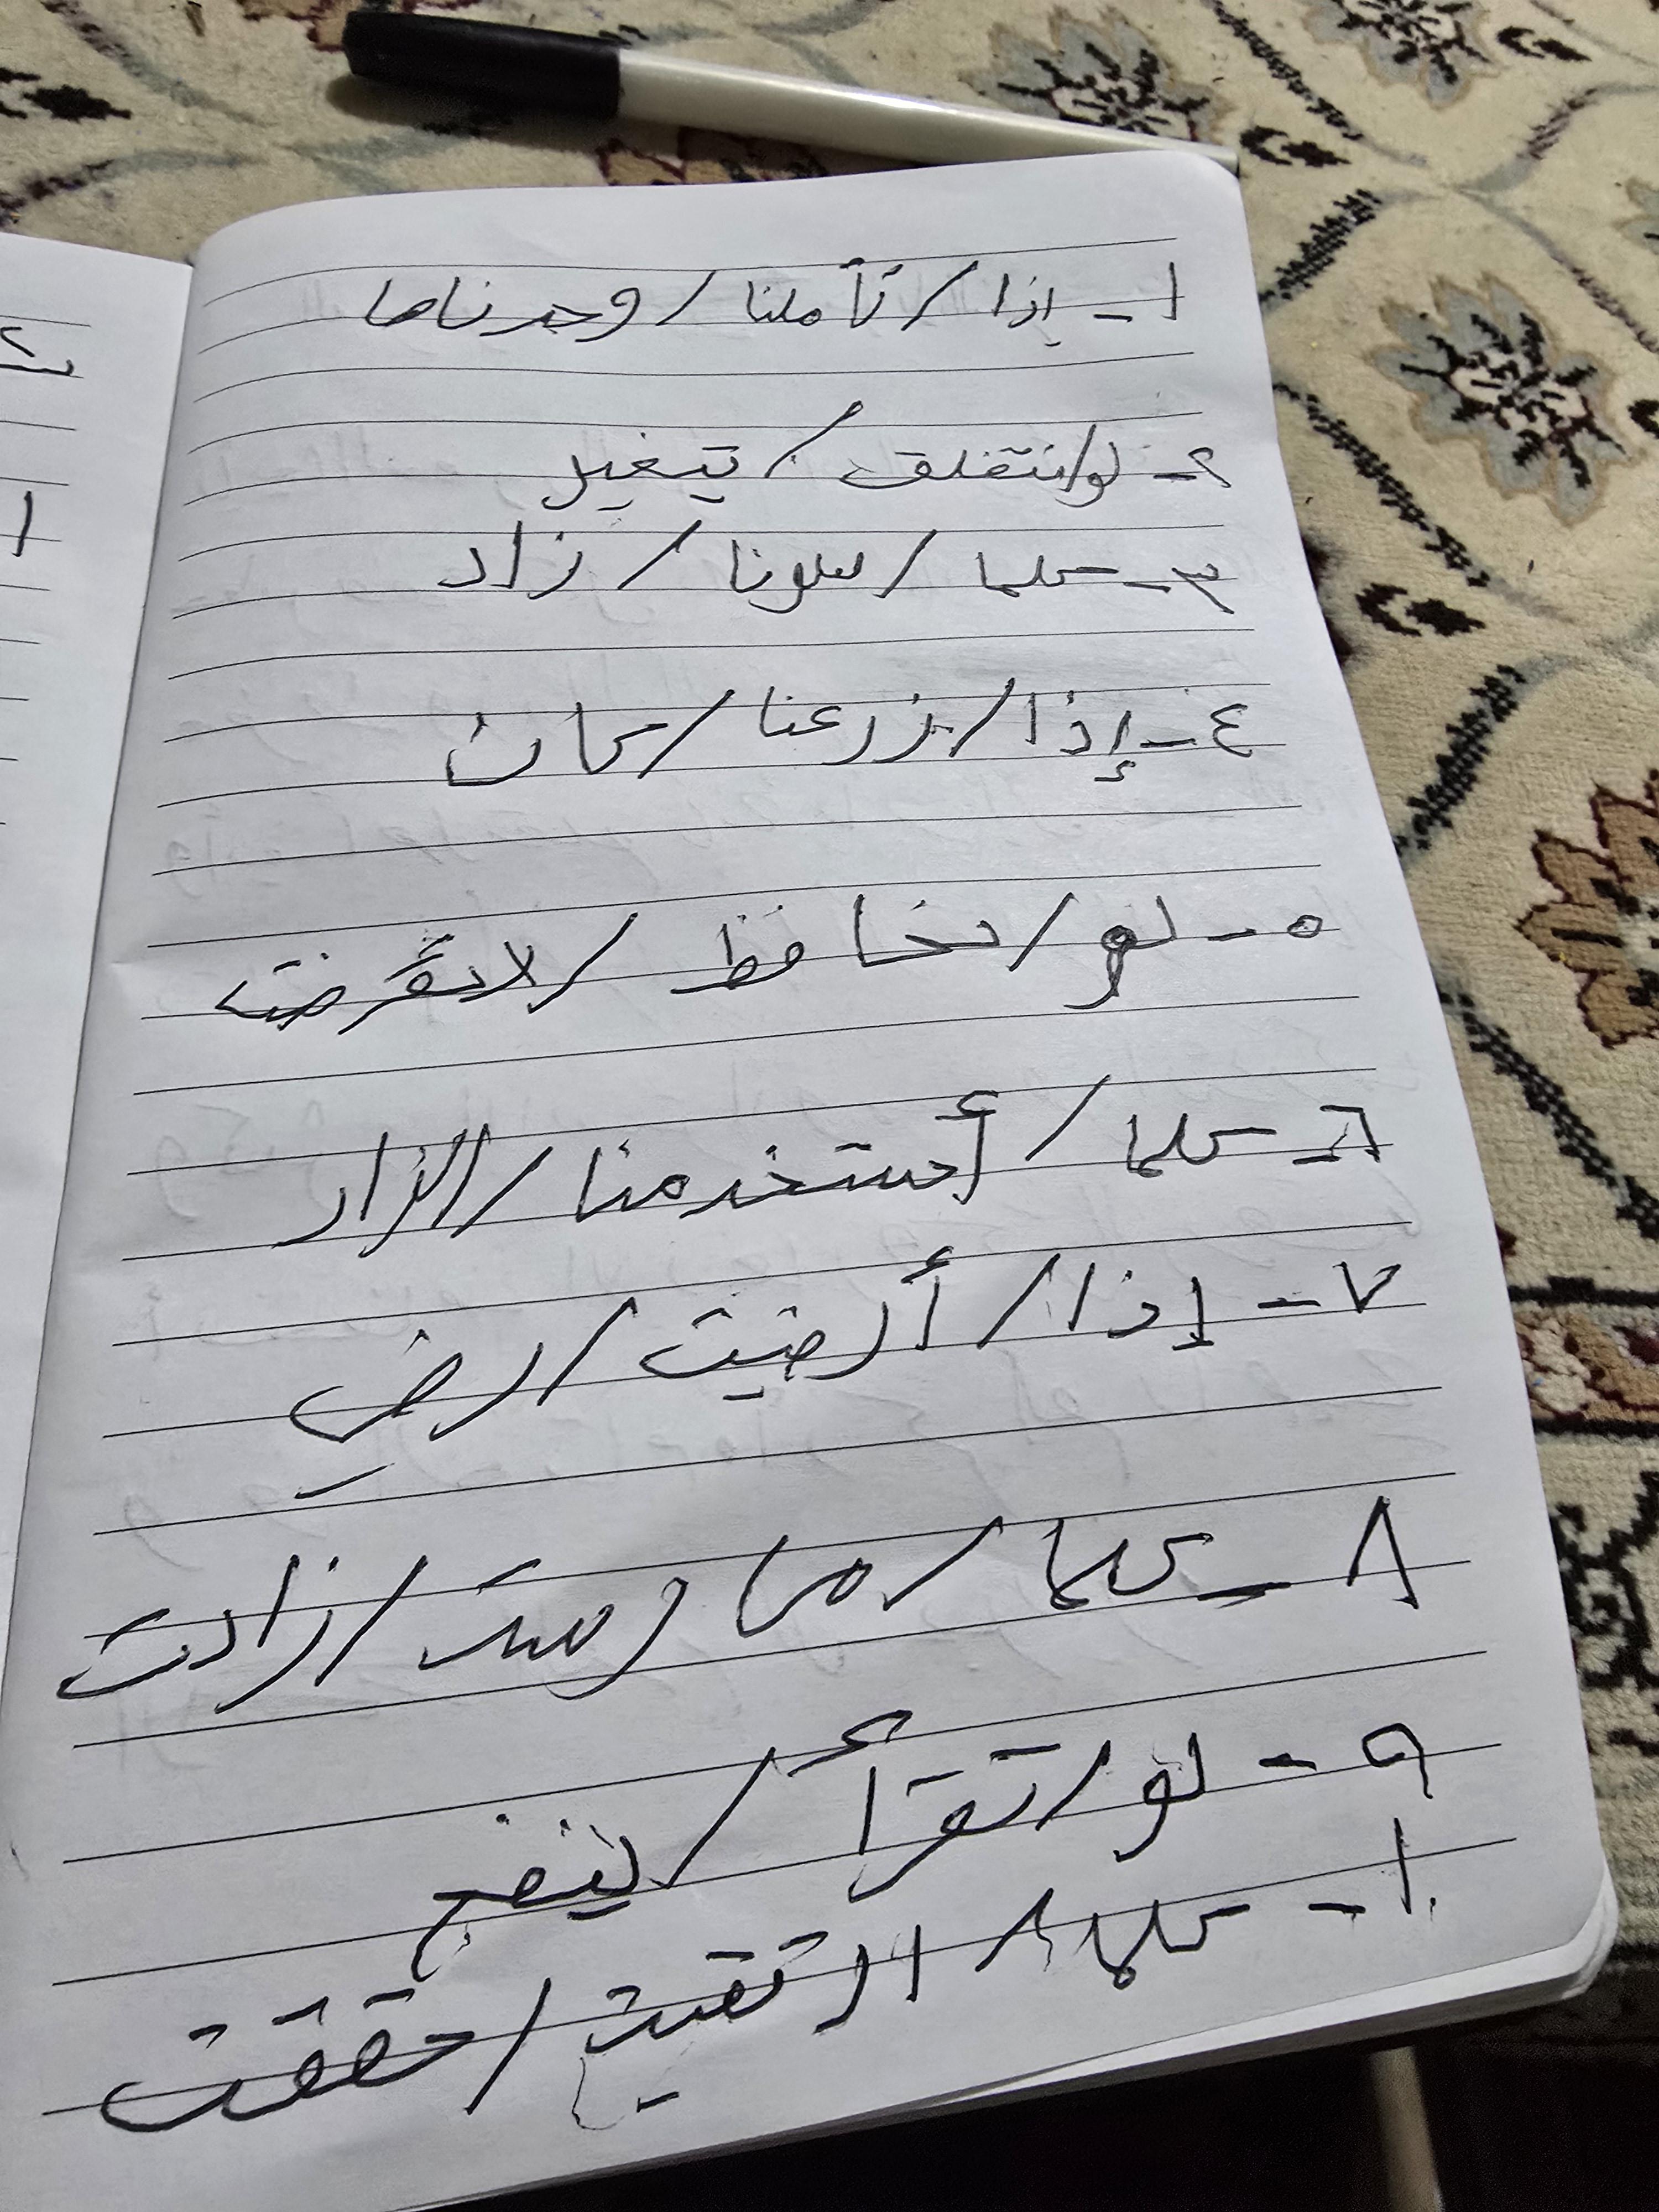 ١- إذا / تأملنا / وجدناها
٢- لو / نتفلق / يتغير
٣- كلما / سلونا / زاد
٤- إذا / زرعنا / كان
٥- لو / نحافظ / لانقرضت
٦- كلما / أستخدمنا / الزاد
٧- إذا / أرضيت / ارضِ
٨- كلما / مارست / زادت
٩- لو / تقرأ / ينفع
١٠- كلما / ارتقيت / حققت